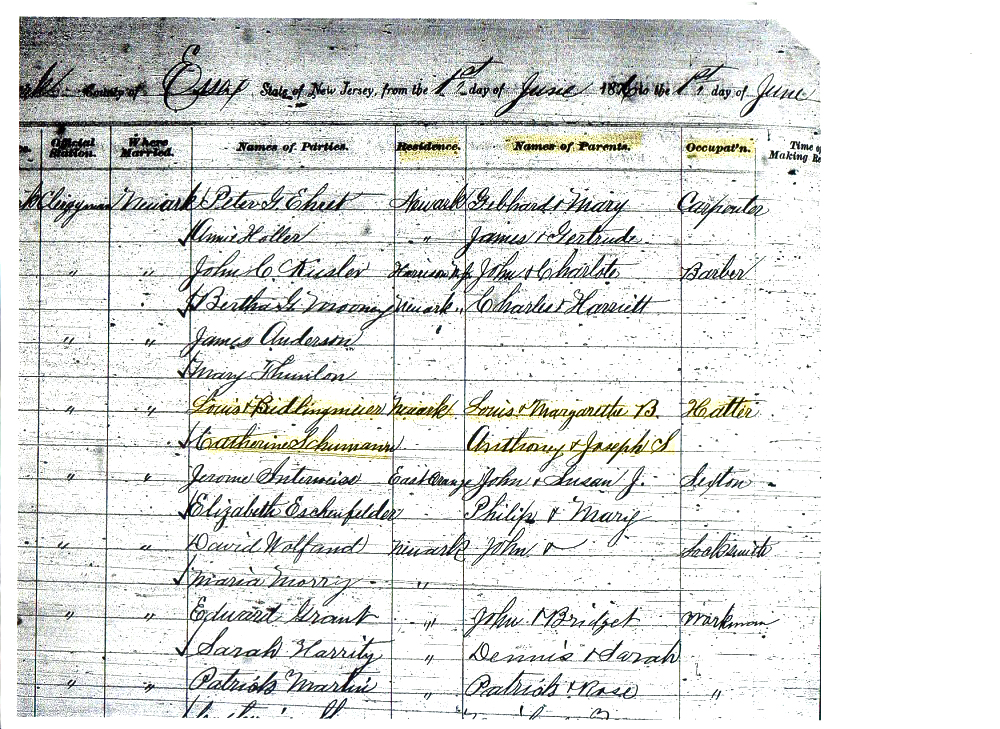 County of Essex State of New Jersey, from the 1st day of June 187 to the 1st day of June
Official Station. Where Married. Names of Parties. Residence. Names of Parents. Occupat'n. Time of Making Re
Clergyman Newark Peter G. Ehret Newark Gebhard & Mary Carpenter
Annie Holler " James & Gertrude
" " John C Kusler Harrison N.J. John & Charlote Barber
Bertha G. Mooney Newark Charles & Harriett
" " James Anderson
Mary
" " Louis Bidlingmeier Newark Louis & Margarethe B. Hatter
Catherine Schumann Anthoney & Joseph S
" " Jerome Interwiss East Orange John & Susan J. Sexton
Elizabeth Eschenfelder Philip & Mary
" " David Wolfand Newark John & Locksmith
Maria Morry "
" " Edward Grant " John & Bridget Workman
Sarah Harrity " Dennis & Sarah
" " Patrick Martin " Patrick & Rose "